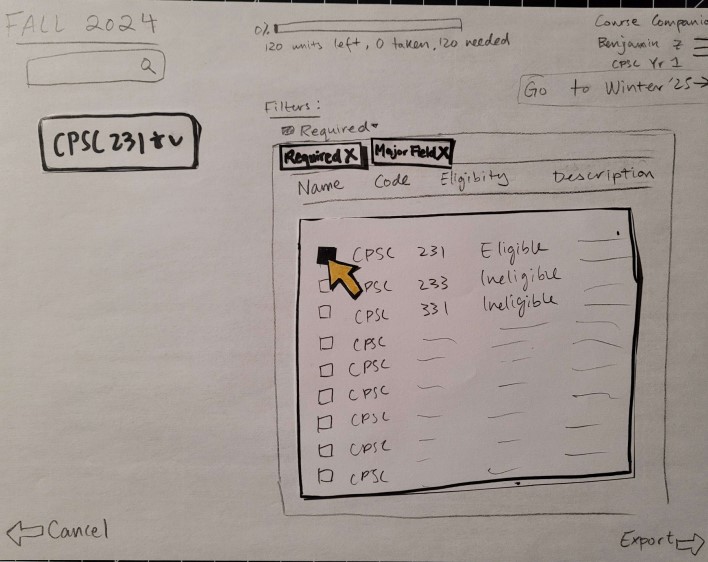 FALL 2024
0%
120 units left, 0 taken, 120 needed
Course Companio
Benjamin Z
CPSC Yr 1
Go to Winter '25
CPSC 231
Filters:
Required
Required X Major Field X
Name Code Eligibity Description
CPSC 231 Eligible
PSC 233 Ineligible
CPSC 331 Ineligible
CPSC
CPSC
CPSC
CPSC
CPSC
CPSC
Cancel
Export